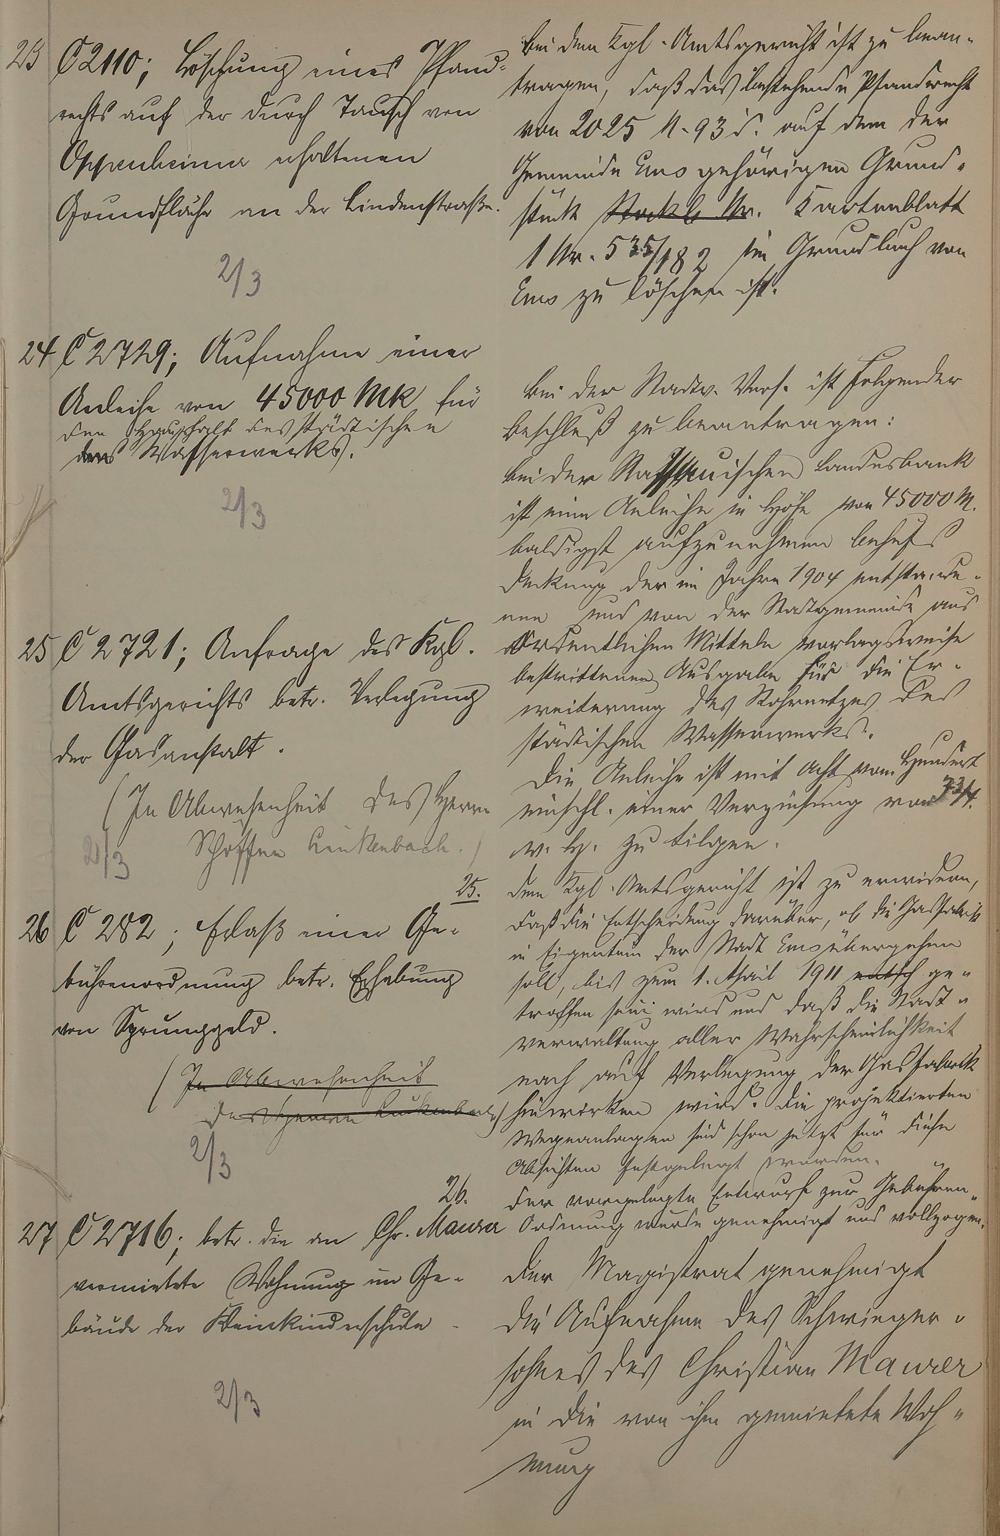 23 C 2110; Löschung eines Pfand-
rechts auf der durch Tausch von
Oppenheimer erhaltenen
Grundfläche an der Lindenstraße.
2/3
Bei dem Kgl. Amtsgericht ist zu bean-
tragen, daß das bestehende Pfandrecht
von 2025 M. 93 d. auf dem der
Gemeinde Ems gehörigen Grund-
stück Stockb. Nr. Kartenblatt
1 Nr. 535/182 im Grundbuch von
Ems zu löschen ist.
24 C 2729; Aufnahme einer
Anleihe von 45000 Mk für
den Haushalt des städtischen
des Wasserwerks.
2/3
Bei der Stadtv. Vers. ist folgender
Beschluß zu beantragen:
Bei der Nassauischen Landesbank
ist eine Anleihe in Höhe von 45000 M.
baldigst aufzunehmen behufs
Deckung der im Jahre 1904 entstande-
nen und von der Stadtgemeinde aus
ordentlichen Mitteln vorlagsweise
bestrittenen Ausgabe für die Er-
weiterung des Rohrnetzes des
städtischen Wasserwerks.
Die Anleihe ist mit acht vom Hundert
einschl. einer Verzinsung von 3 3/4
v. H. zu tilgen.
25 C 2721; Anfrage des Kgl.
Amtsgerichts betr. Verlegung
der Gasanstalt.
(In Abwesenheit des Herrn
Schöffen Linkenbach.)
2/3
25. Dem Kgl. Amtsgericht ist zu erwidern,
daß die Entscheidung darüber, ob die Gasfabrik
in Eigentum der Stadt Ems übergehen
soll, bis zum 1. April 1911 ge-
troffen sein wird und daß die Stadt-
verwaltung aller Wahrscheinlichkeit
nach auf Verlegung der Gasfabrik
hinwirken wird. Die projektierten
Wegeanlagen sind schon jetzt für diese
Absichten festgelegt worden.
26 C 282; Erlaß einer Ge-
bührenordnung betr. Erhebung
von Sprunggeld.
(In Abwesenheit
des Herrn Linkenbach)
2/3
26. Der vorgelegte Entwurf zur Gebühren-
Ordnung wurde genehmigt und vollzogen.
27 C 2716; betr. die an Chr. Maurer
vermietete Wohnung im Ge-
bäude der Kleinkinderschule
2/3
Der Magistrat genehmigt
die Aufnahme des Schwieger-
sohnes des Christian Maurer
in die von ihm gemietete Woh-
nung